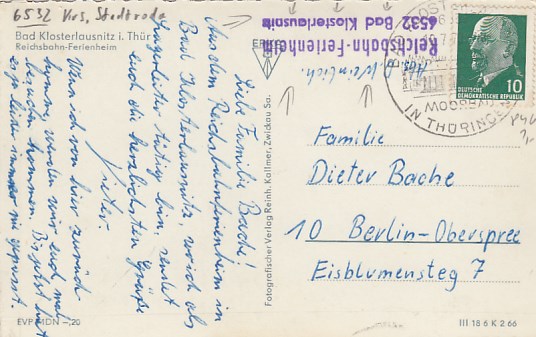 6532 Krs. Stadtroda
Bad Klosterlausnitz i. Thür
Reichsbahn-Ferienheim
Liebe Familie Bache!
Aus dem Reichsbahnferienheim in
Bad Klosterlausnitz, wo ich als
tätig bin, sendet
euch die herzlichsten Grüße
Dieter.
Wenn ich von hier zurück
komme, werden wir euch mal
besuchen kommen. Bis jetzt hat
es ja leider immer nie gepasst.
EVP MDN -,20
Fotografischer Verlag Reinh. Kallmer, Zwickau Sa.
Reichsbahn-Ferienheim
6532 Bad Klosterlausnitz
MOORBAD
IN THÜRINGEN
DEUTSCHE
DEMOKRATISCHE REPUBLIK
10
Familie
Dieter Bache
10 Berlin-Oberspree
Eisblumensteg 7
III 18 6 K 2 66